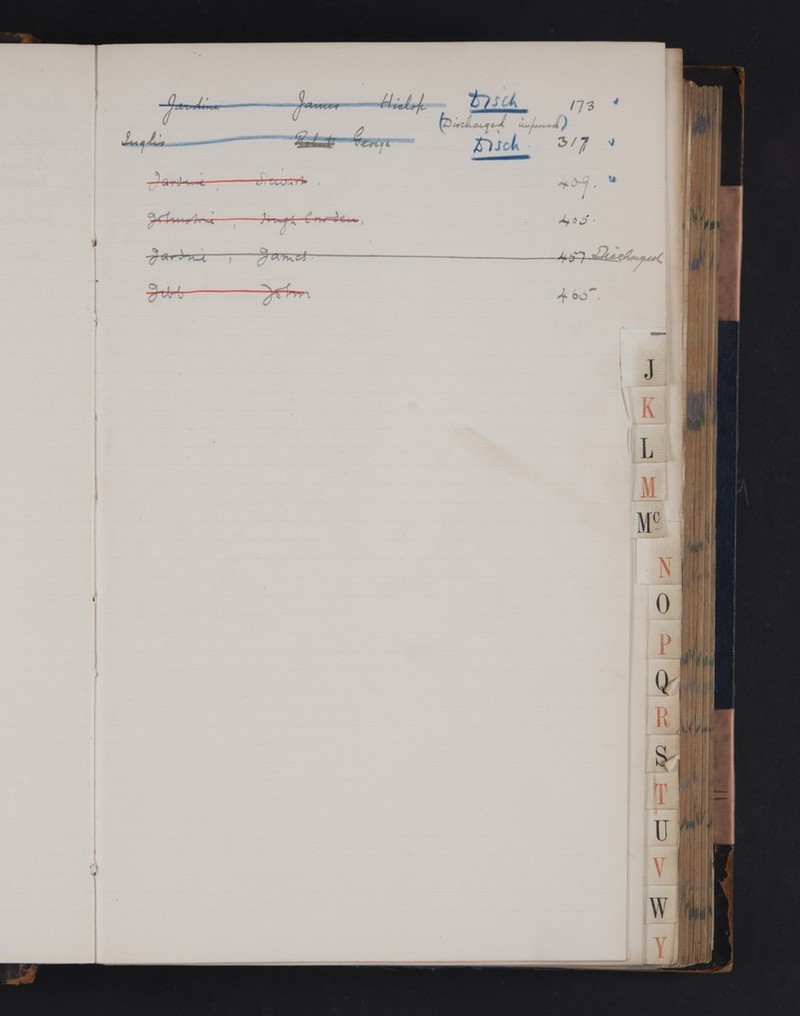 Jardine James Hislop Disch 173
(Discharged improved)
Inglis George Disch 317
Jardine, Stewart. 409.
Johnstone, Hugh Cowden. 405.
Jardine, James. 457 Discharged
Jebb John 465.
J
K
L
M
Mc
N
O
P
Q
R
S
T
U
V
W
Y